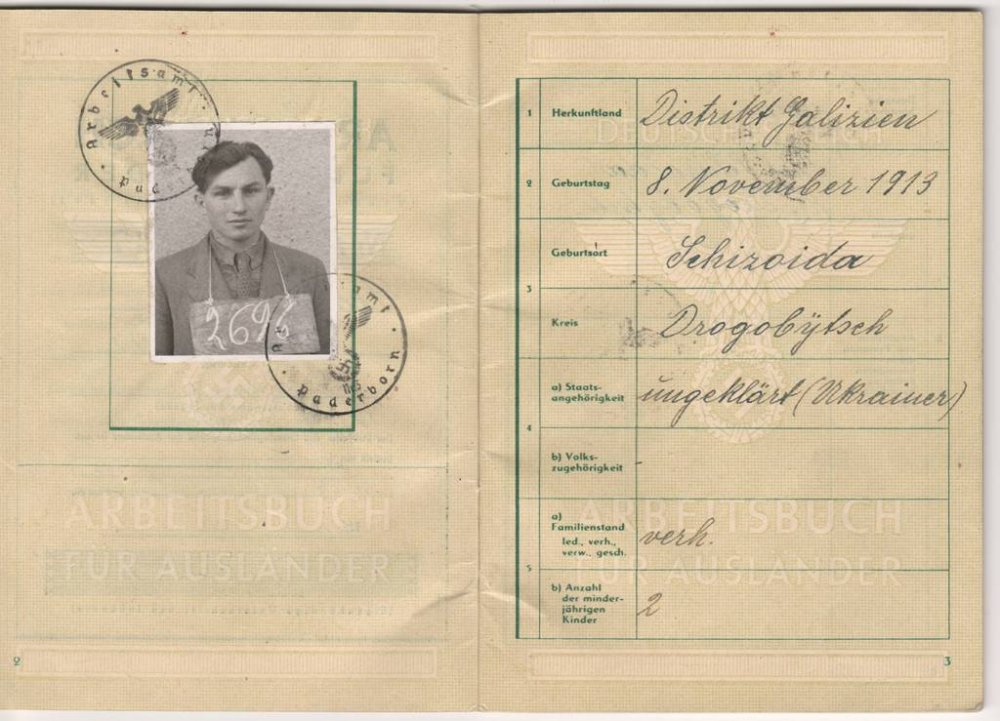 Arbeitsamt
Pad
2696
Arbeitsamt
Paderborn
ARBEITSBUCH
FÜR AUSLÄNDER
2
1 Herkunftland Distrikt Galizien
2 Geburtstag 8. November 1913
Geburtsort Schizoida
3
Kreis Drogobÿtsch
a) Staats-
angehörigkeit ungeklärt (Ukrainer)
4
b) Volks-
zugehörigkeit
a)
Familienstand
led., verh., verh.
verw., gesch.
5
b) Anzahl
der minder-
jährigen 2
Kinder
ARBEITSBUCH
FÜR AUSLÄNDER
3